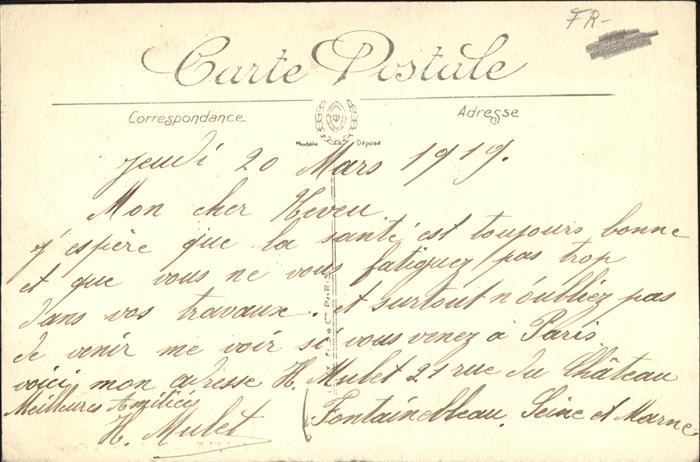 FR-
Carte Postale
Correspondance
Adresse
Modèle Déposé
Jeudi 20 Mars 1919.
Mon cher Neveu
J'espère que la santé est toujours bonne
et que vous ne vous fatiguez pas trop
dans vos travaux. et surtout n'oubliez pas
de venir me voir si vous venez à Paris.
voici mon adresse H. Mulet 21 rue du Château
Meilleures Amitiés
Fontainebleau. Seine et Marne
H. Mulet